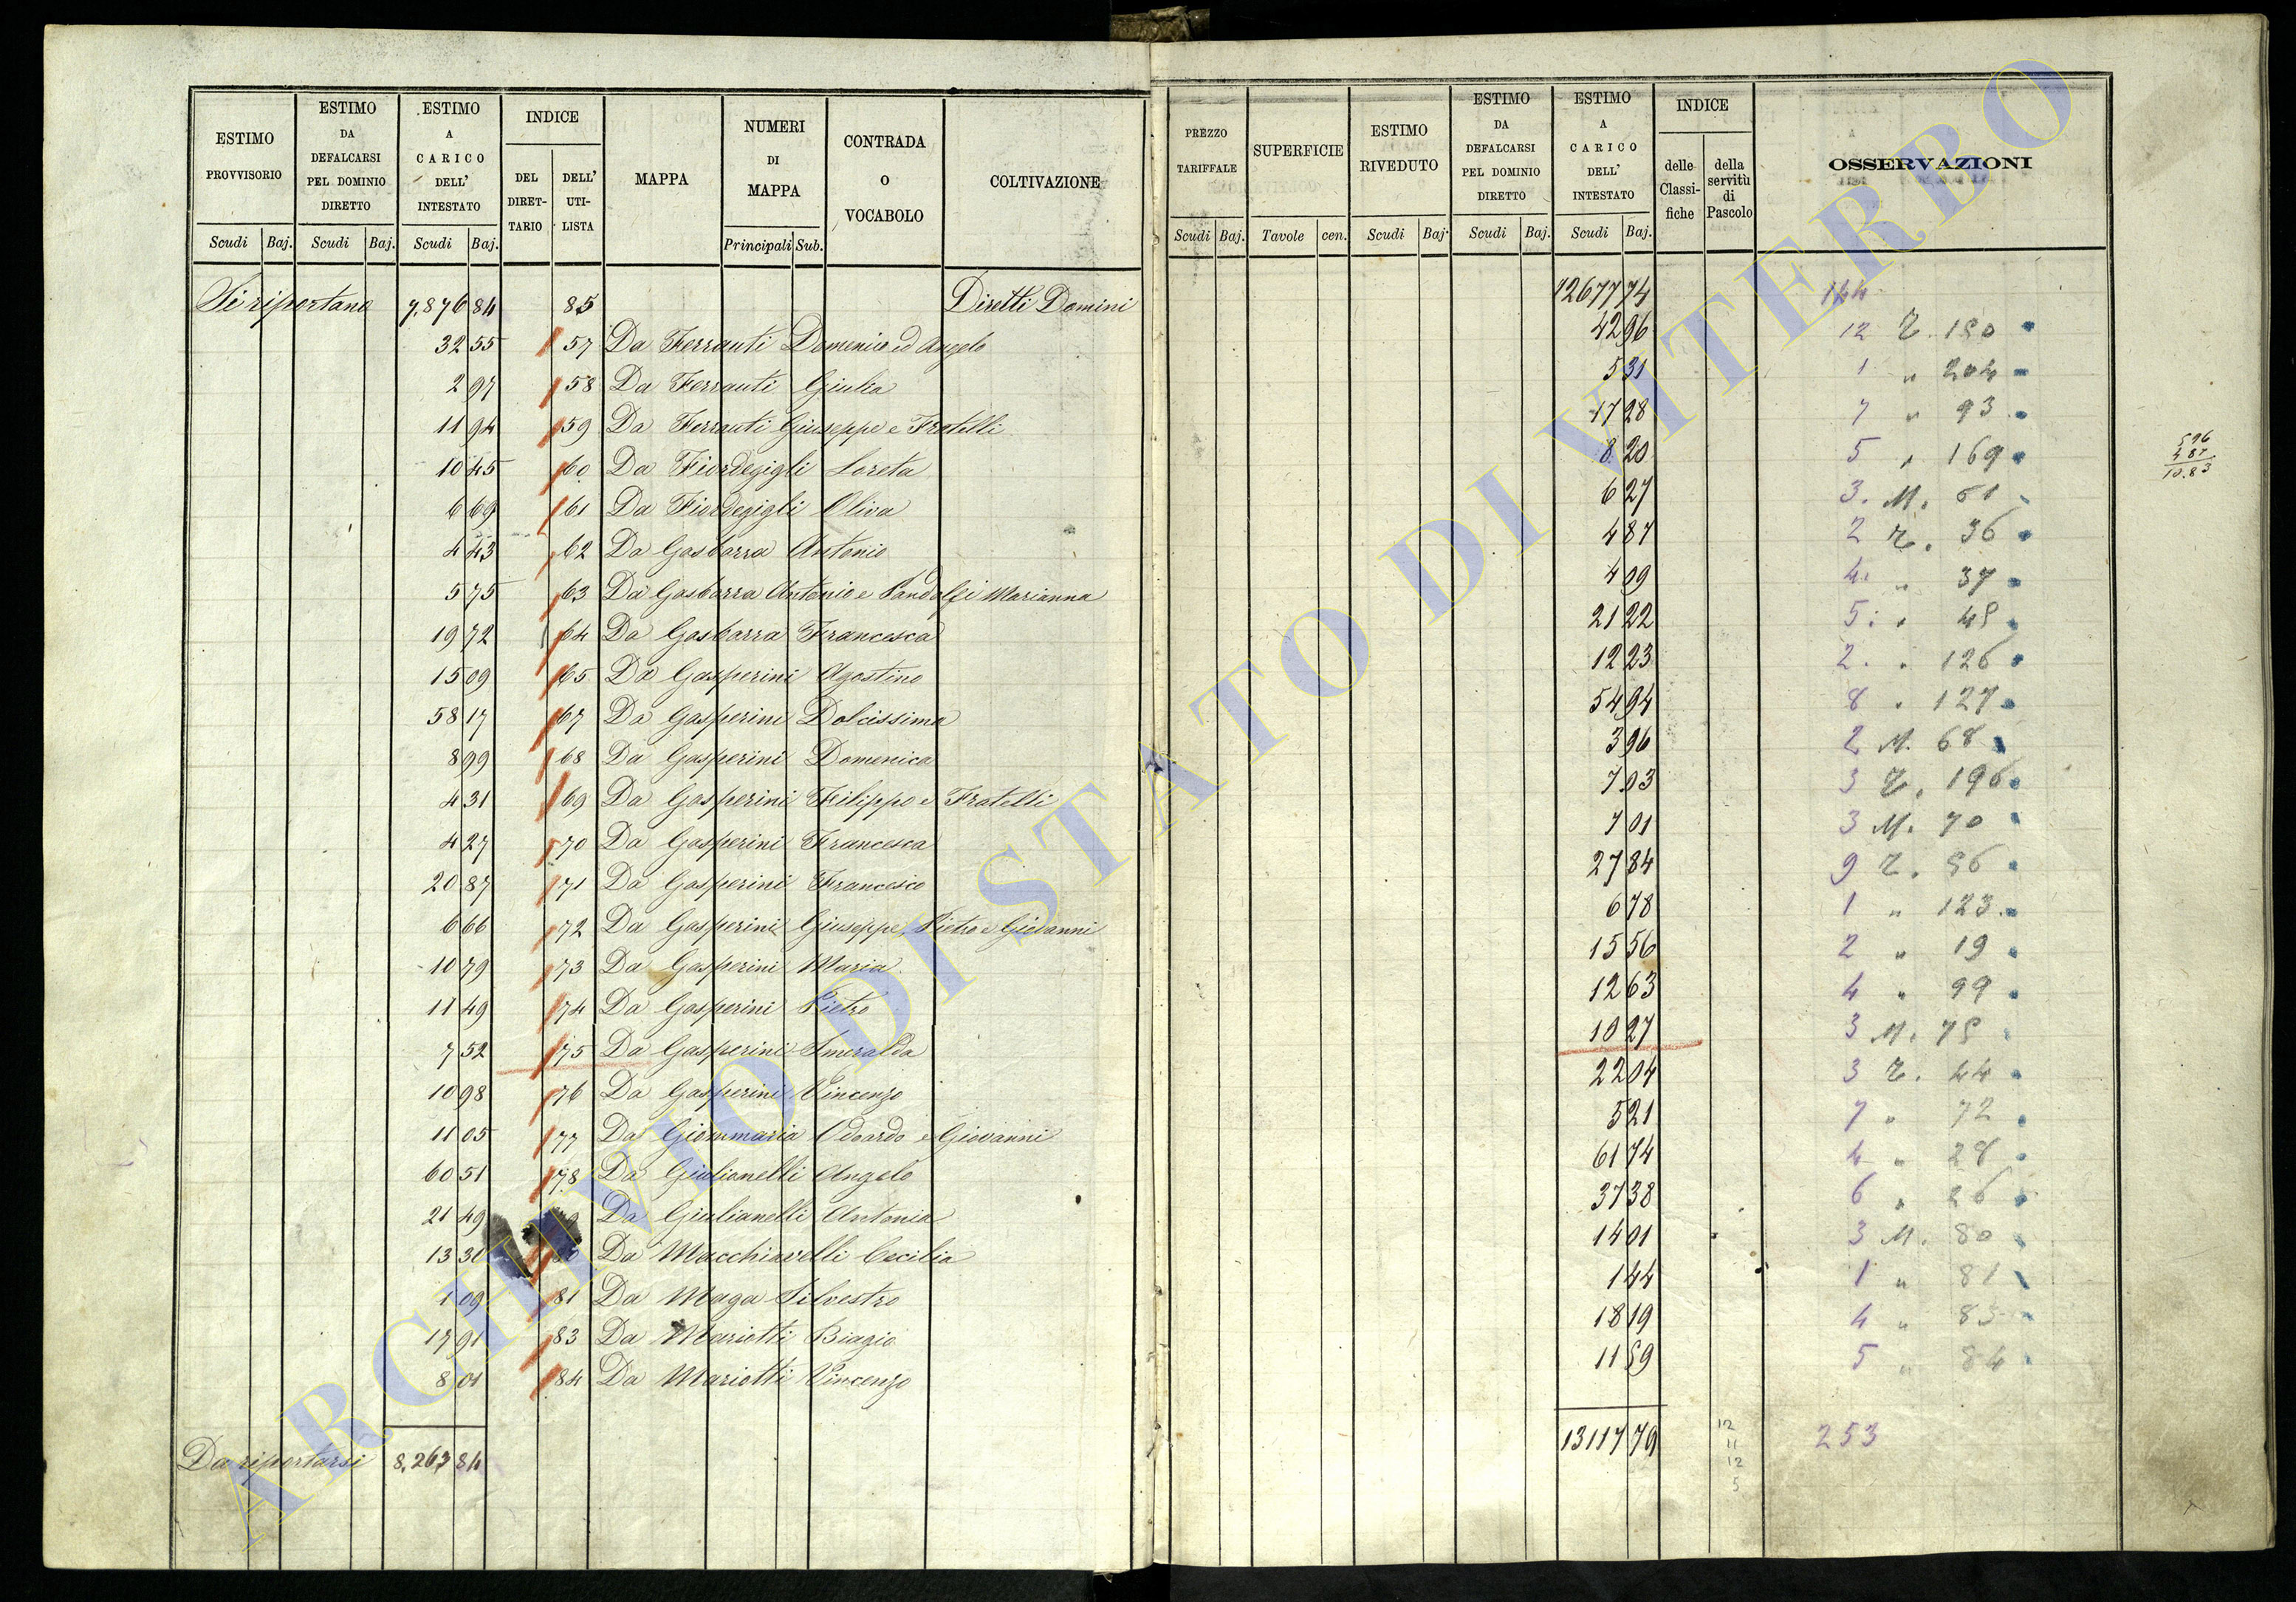 ESTIMO PROVVISORIO | ESTIMO DA DEFALCARSI PEL DOMINIO DIRETTO | ESTIMO A CARICO DELL' INTESTATO | INDICE | MAPPA | NUMERI DI MAPPA | CONTRADA O VOCABOLO | COLTIVAZIONE | PREZZO TARIFFALE | SUPERFICIE | ESTIMO RIVEDUTO | ESTIMO DA DEFALCARSI PEL DOMINIO DIRETTO | ESTIMO A CARICO DELL' INTESTATO | INDICE | OSSERVAZIONI
DEL DIRETTARIO | DELL' UTILISTA | delle Classifiche | della servitù di Pascolo
Scudi | Baj. | Scudi | Baj. | Scudi | Baj. | Principali | Sub. | Scudi | Baj. | Tavole | cen. | Scudi | Baj. | Scudi | Baj. | Scudi | Baj.
Si riportano 7,876 84 85 Diretti Domini 12677 74 144
32 55 57 Da Ferrauti Domenico ed Angelo 42 96 12 R. 180
2 97 58 Da Ferrauti Giulia 5 31 1 " 204
11 94 59 Da Ferrauti Giuseppe e Fratelli 17 28 7 " 93
10 45 60 Da Fiordegigli Loreta 8 20 5 " 169
6 69 61 Da Fiordegigli Oliva 6 27 3. M. 61
4 43 62 Da Gasbarra Antonio 4 87 2 R. 36
5 75 63 Da Gasbarra Antonio e Pandolfi Marianna 4 09 4. " 37
19 72 64 Da Gasbarra Francesca 21 22 5. "
15 09 65 Da Gasperini Agostino 12 23 2. " 126
58 17 67 Da Gasperini Dolcissima 54 94 8 " 127
8 99 68 Da Gasperini Domenica 3 96 2 M. 68
4 31 69 Da Gasperini Filippo e Fratelli 7 03 3 R. 196
4 27 70 Da Gasperini Francesca 7 01 3 M. 70
20 87 71 Da Gasperini Francesco 27 84 9 R.
6 66 72 Da Gasperini Giuseppe, Pietro e Giovanni 6 78 1 " 123
10 79 73 Da Gasperini Maria 15 56 2 " 19
11 49 74 Da Gasperini Pietro 12 63 4 " 99
7 52 75 Da Gasperini Smeralda 10 27 3 M. 75
10 98 76 Da Gasperini Vincenzo 22 04 3 R. 44
11 05 77 Da Giommaria Odoardo e Giovanni 5 21 7 " 72
60 51 78 Da Giulianelli Angelo 61 74 4 " 28
21 49 Da Giulianelli Antonia 37 38 6 " 26
13 31 Da Macchiavelli Cecilia 14 01 3 M. 80
1 09 81 Da Maga Silvestro 1 44 1 " 81
17 91 83 Da Mariotti Biagio 18 19 4 " 83
8 01 84 Da Mariotti Vincenzo 11 59 5 " 84
Da riportarsi 8,263 84 13117 79 253
12
11
12
5
5 96
4 87
10.83
ARCHIVIO DI STATO DI VITERBO